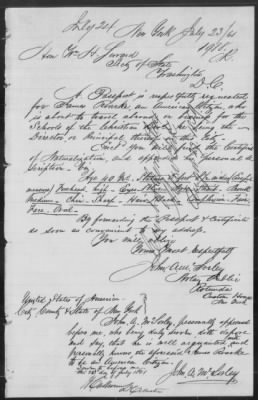 July 24
New York July 23/61
Hon Wm H Seward
Secty of State
Washington
D. C.
A Passport is respectfully requested
for James Rourke, an American Citizen, who
is about to travel abroad on business for the
Schools of the Christian Brothers, as the
Director or Principal
Enc'd you will find the Certificate
of Naturalization, and append the personal de
scription
Age 40 yrs. Stature 5 feet
Forehead high Eyes Blue Nose
Medium Chin Sharp Hair Complexion Fair
Face Oval
By forwarding the Passport & Certificate
as soon as convenient to my address
You will oblige
Yours Most Respectfully
John A McSorley
Notary Public
Rotunda
Custom House
New York
United States of America
City County & State of New York
John A. McSorley, personally appeared
before me, who being duly sworn doth depose
and say, that he is well acquainted and
personally knows the aforesaid James Rourke
to be an American Citizen
Sworn to before me
this 23d day of July 1861
John A. McSorley